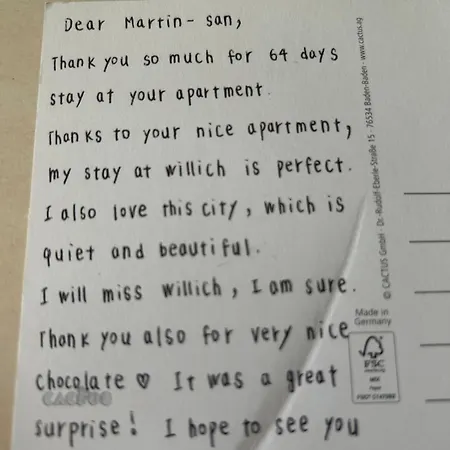 Dear Martin-san,
Thank you so much for 64 days
stay at your apartment.
Thanks to your nice apartment,
my stay at willich is perfect.
I also love this city, which is
quiet and beautiful.
I will miss willich, I am sure.
Thank you also for very nice
chocolate ♡ It was a great
surprise! I hope to see you
© CACTUS GmbH · Dr.-Rudolf-Eberle-Straße 15 · 76534 Baden-Baden · www.cactus.ag
Made in
Germany
FSC
MIX
CACTUS